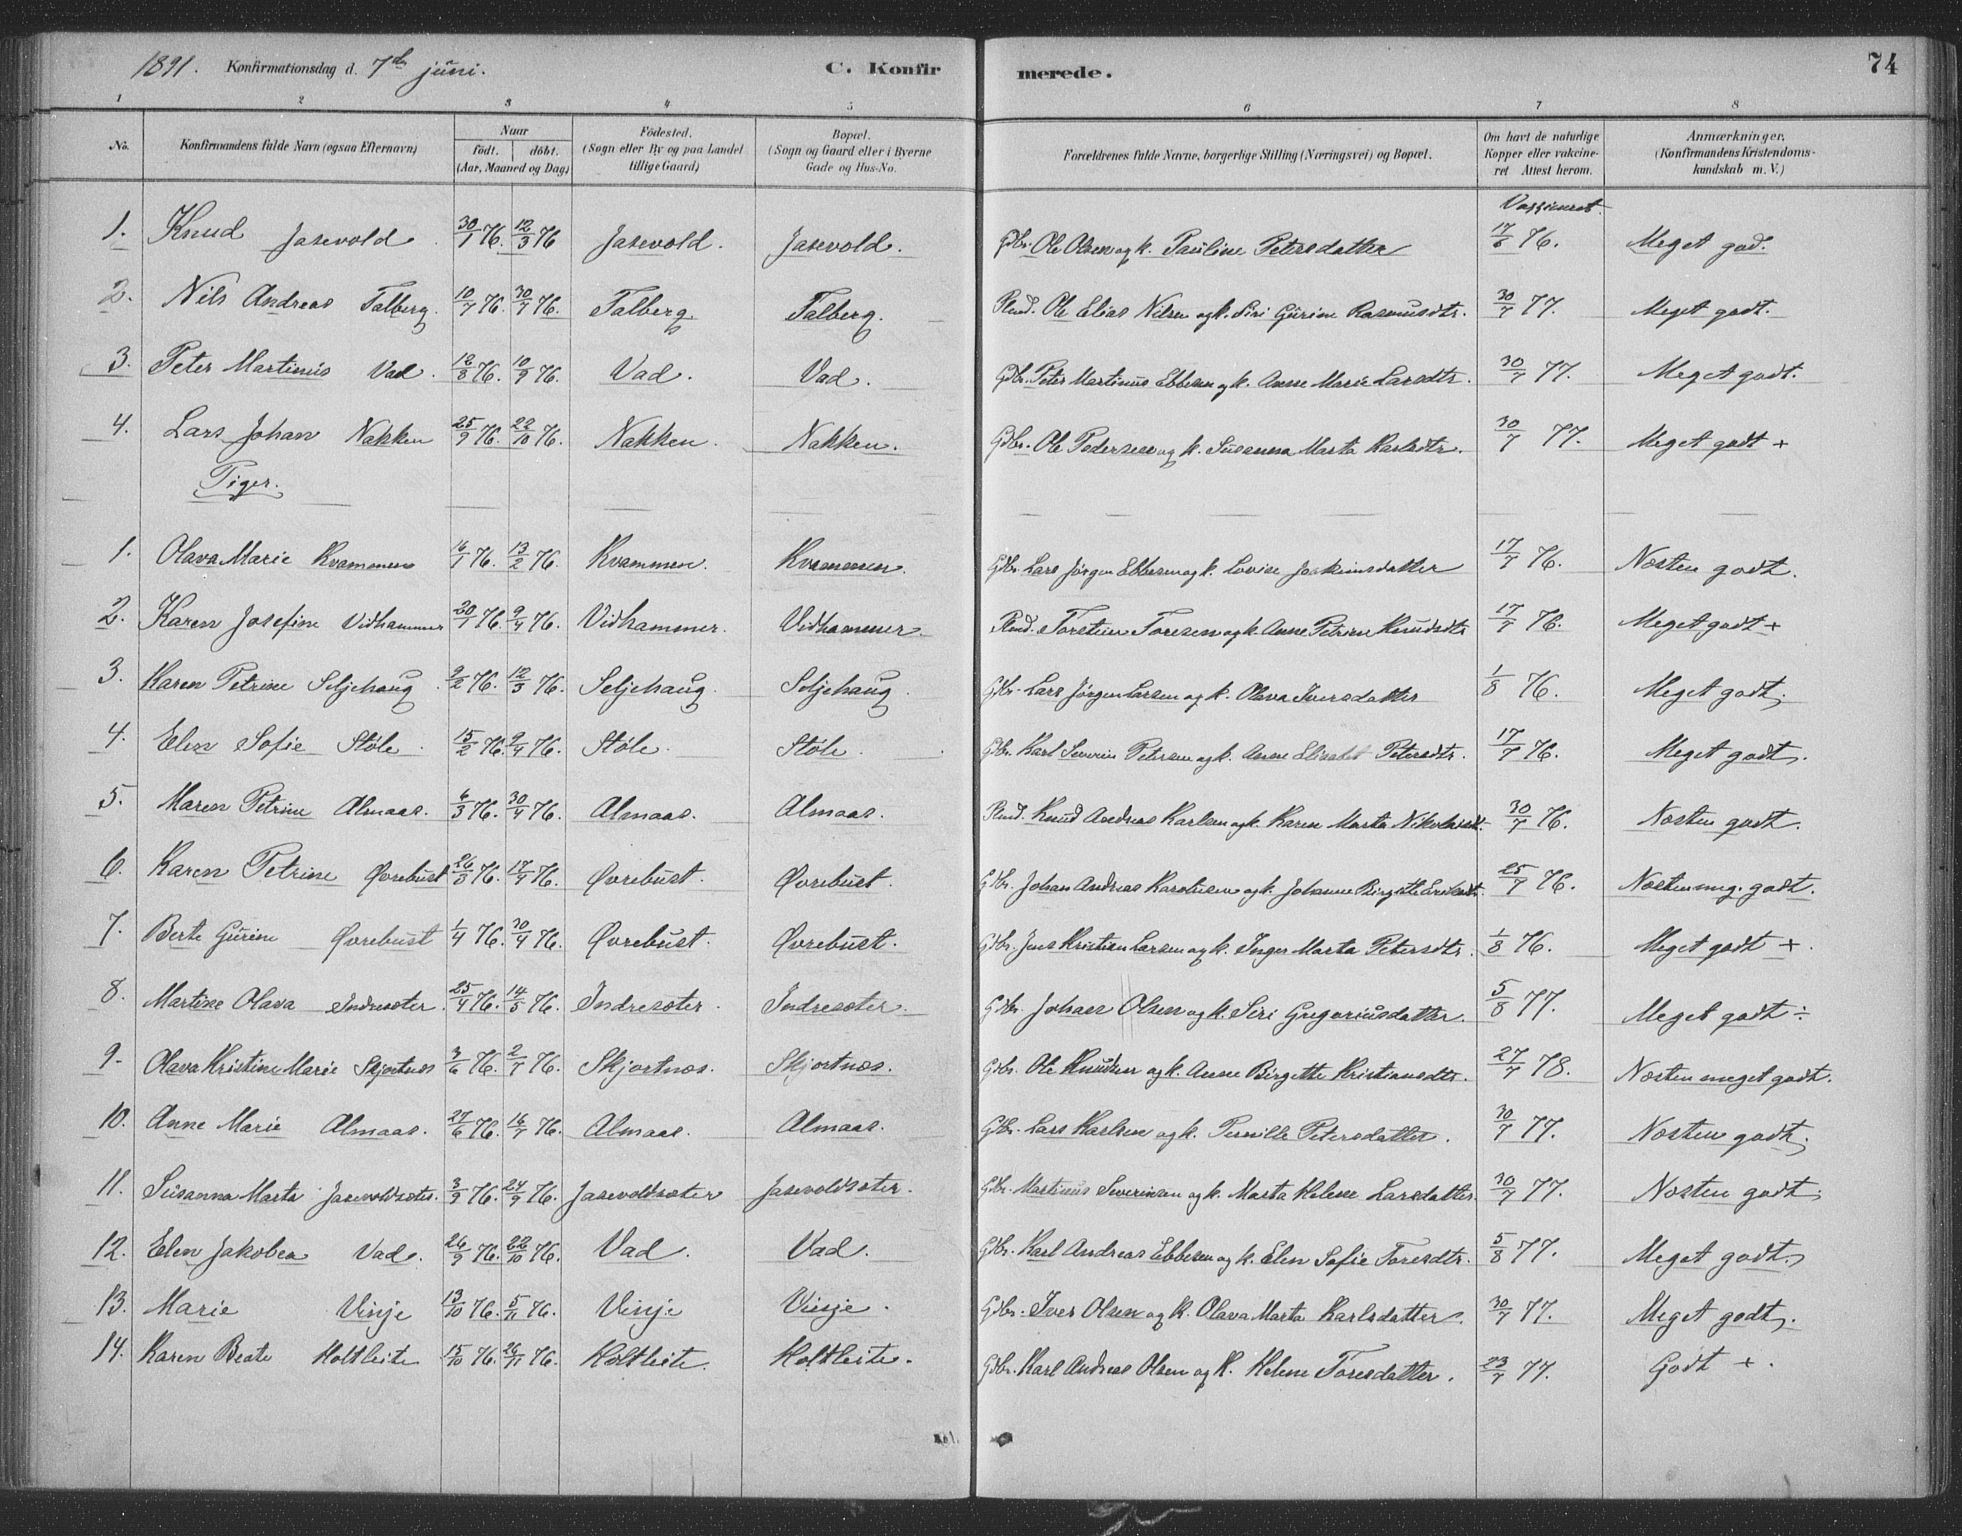 1891. Konfirmationsdag d. 7de juni. C. Konfirmerede. 74
1 2 3 4 5 6 7 8
No. Konfirmandens fulde Navn (ogsaa Efternavn) Naar født. døbt. (Aar, Maaned og Dag) Fødested. (Sogn eller By og paa Landet tillige Gaard) Bopæl. (Sogn og Gaard eller i Byerne Gade og Hus-No. Forældrenes fulde Navne, borgerlige Stilling (Næringsvei) og Bopæl. Om havt de naturlige Kopper eller vakcineret Attest herom. Anmærkninger. (Konfirmandens Kristendomskundskab m. V.)
1. Knud Jasevold 30/1 76 12/3 76 Jasevold. Jasevold. Gdbr. Ole Olsen og k. Pauline Petersdatter 76. Meget god.
2. Nils Andreas Talberg. 10/7 76. 30/7 76. Talberg Talberg. Ole Elias Nilsen og k. Siri Gurine Rasmusdtr. 30/7 77. Meget godt.
3. Peter Martinus Vad. 12/8 76. 10/9 76. Vad. Vad. Gdbr. Peter Martinus Ebbesen og k. Anne Marie Larsdtr. 30/7 77. Meget godt.
4. Lars Johan Nakken 25/9 76. 22/10 76. Nakken. Nakken. Gdbr. Ole Pedersen og k. Susanna Marta Karlsdtr. 30/7 77. Meget godt +
Piger.
1. Olava Marie Kvammen 16/1 76. 13/2 76. Kvammen. Kvammen. Gdbr. Lars Jørgen Ebbesen og k. Lovise Joakimsdatter 17/7 76. Næsten godt.
2. Karen Josefine Vidhammer 20/1 76. 9/4 76. Vidhammer. Vidhammer. Torstein Toresen og k. Anne Petrine Knudsdtr 17/7 76. Meget godt +
3. Karen Petrine Seljehaug. 9/2 76. 12/3 76. Seljehaug. Seljehaug. Gdbr. Lars Jørgen Larsen og k. Olava Iversdatter 1/8 76. Meget godt.
4. Elen Sofie Støle. 15/2 76. 9/4 76. Støle. Støle. Gdbr. Karl Severin Petersen og k. Anne Elisabet Petersdtr. 17/7 76. Meget godt.
5. Maren Petrine Almaas. 6/3 76. 30/4 76. Almaas. Almaas. Knud Andreas Karlsen og k. Karen Marta 30/7 76. Næsten godt.
6. Karen Petrine Øvrebust 26/3 76. 17/4 76. Øvrebust. Øvrebust. Gdbr. Johan Andreas og k. Johanne Birgitte 25/7 76. Næsten meg. godt.
7. Berte Gurine Øvrebust 1/4 76. 30/4 76. Øvrebust. Øvrebust. Gdbr. Jens Kristian Larsen og k. Inger Marta Petersdtr. 1/8 76. Meget godt +.
8. Martine Olava Indresæter. 25/4 76. 14/5 76. Indresæter. Indresæter. Gdbr. Johan Olsen og k. Siri Gregoriusdatter. 5/8 77. Meget godt ÷
9. Olava Kristine Marie Skjortnæs 3/6 76. 2/7 76. Skjortnæs. Skjortnæs. Gdbr. Ole Knudsen og k. Anne Birgitte Kristiansdtr. 27/7 78. Næsten meget godt.
10. Anne Marie Almaas. 27/6 76. 16/7 76. Almaas. Almaas. Gdbr. Lars Karlsen og k. Pernille Petersdatter. 30/7 77. Næsten godt.
11. Susanna Marta Jasevoldsæter. 3/9 76. 24/9 76. Jasevoldsæter Jasevoldsæter. Gdbr. Martinus Severinsen og k. Marta Helene Larsdatter 30/7 77. Næsten godt.
12. Elen Jakobea Vad. 26/9 76. 22/10 76. Vad. Vad. Gdbr. Karl Andreas Ebbesen og k. Elen Sofie Toresdtr. 5/8 77. Meget godt.
13. Marie Vinje 13/10 76. 5/11 76. Vinje Vinje. Gdbr. Iver Olsen og k. Olava Marta Karlsdatter. 30/7 77. Meget godt.
14. Karen Beate Holtleite 15/10 76. 26/11 76. Holtleite. Holtleite. Gdbr. Karl Andreas Olsen og k. Helene Toresdatter. 23/7 77. Godt +.